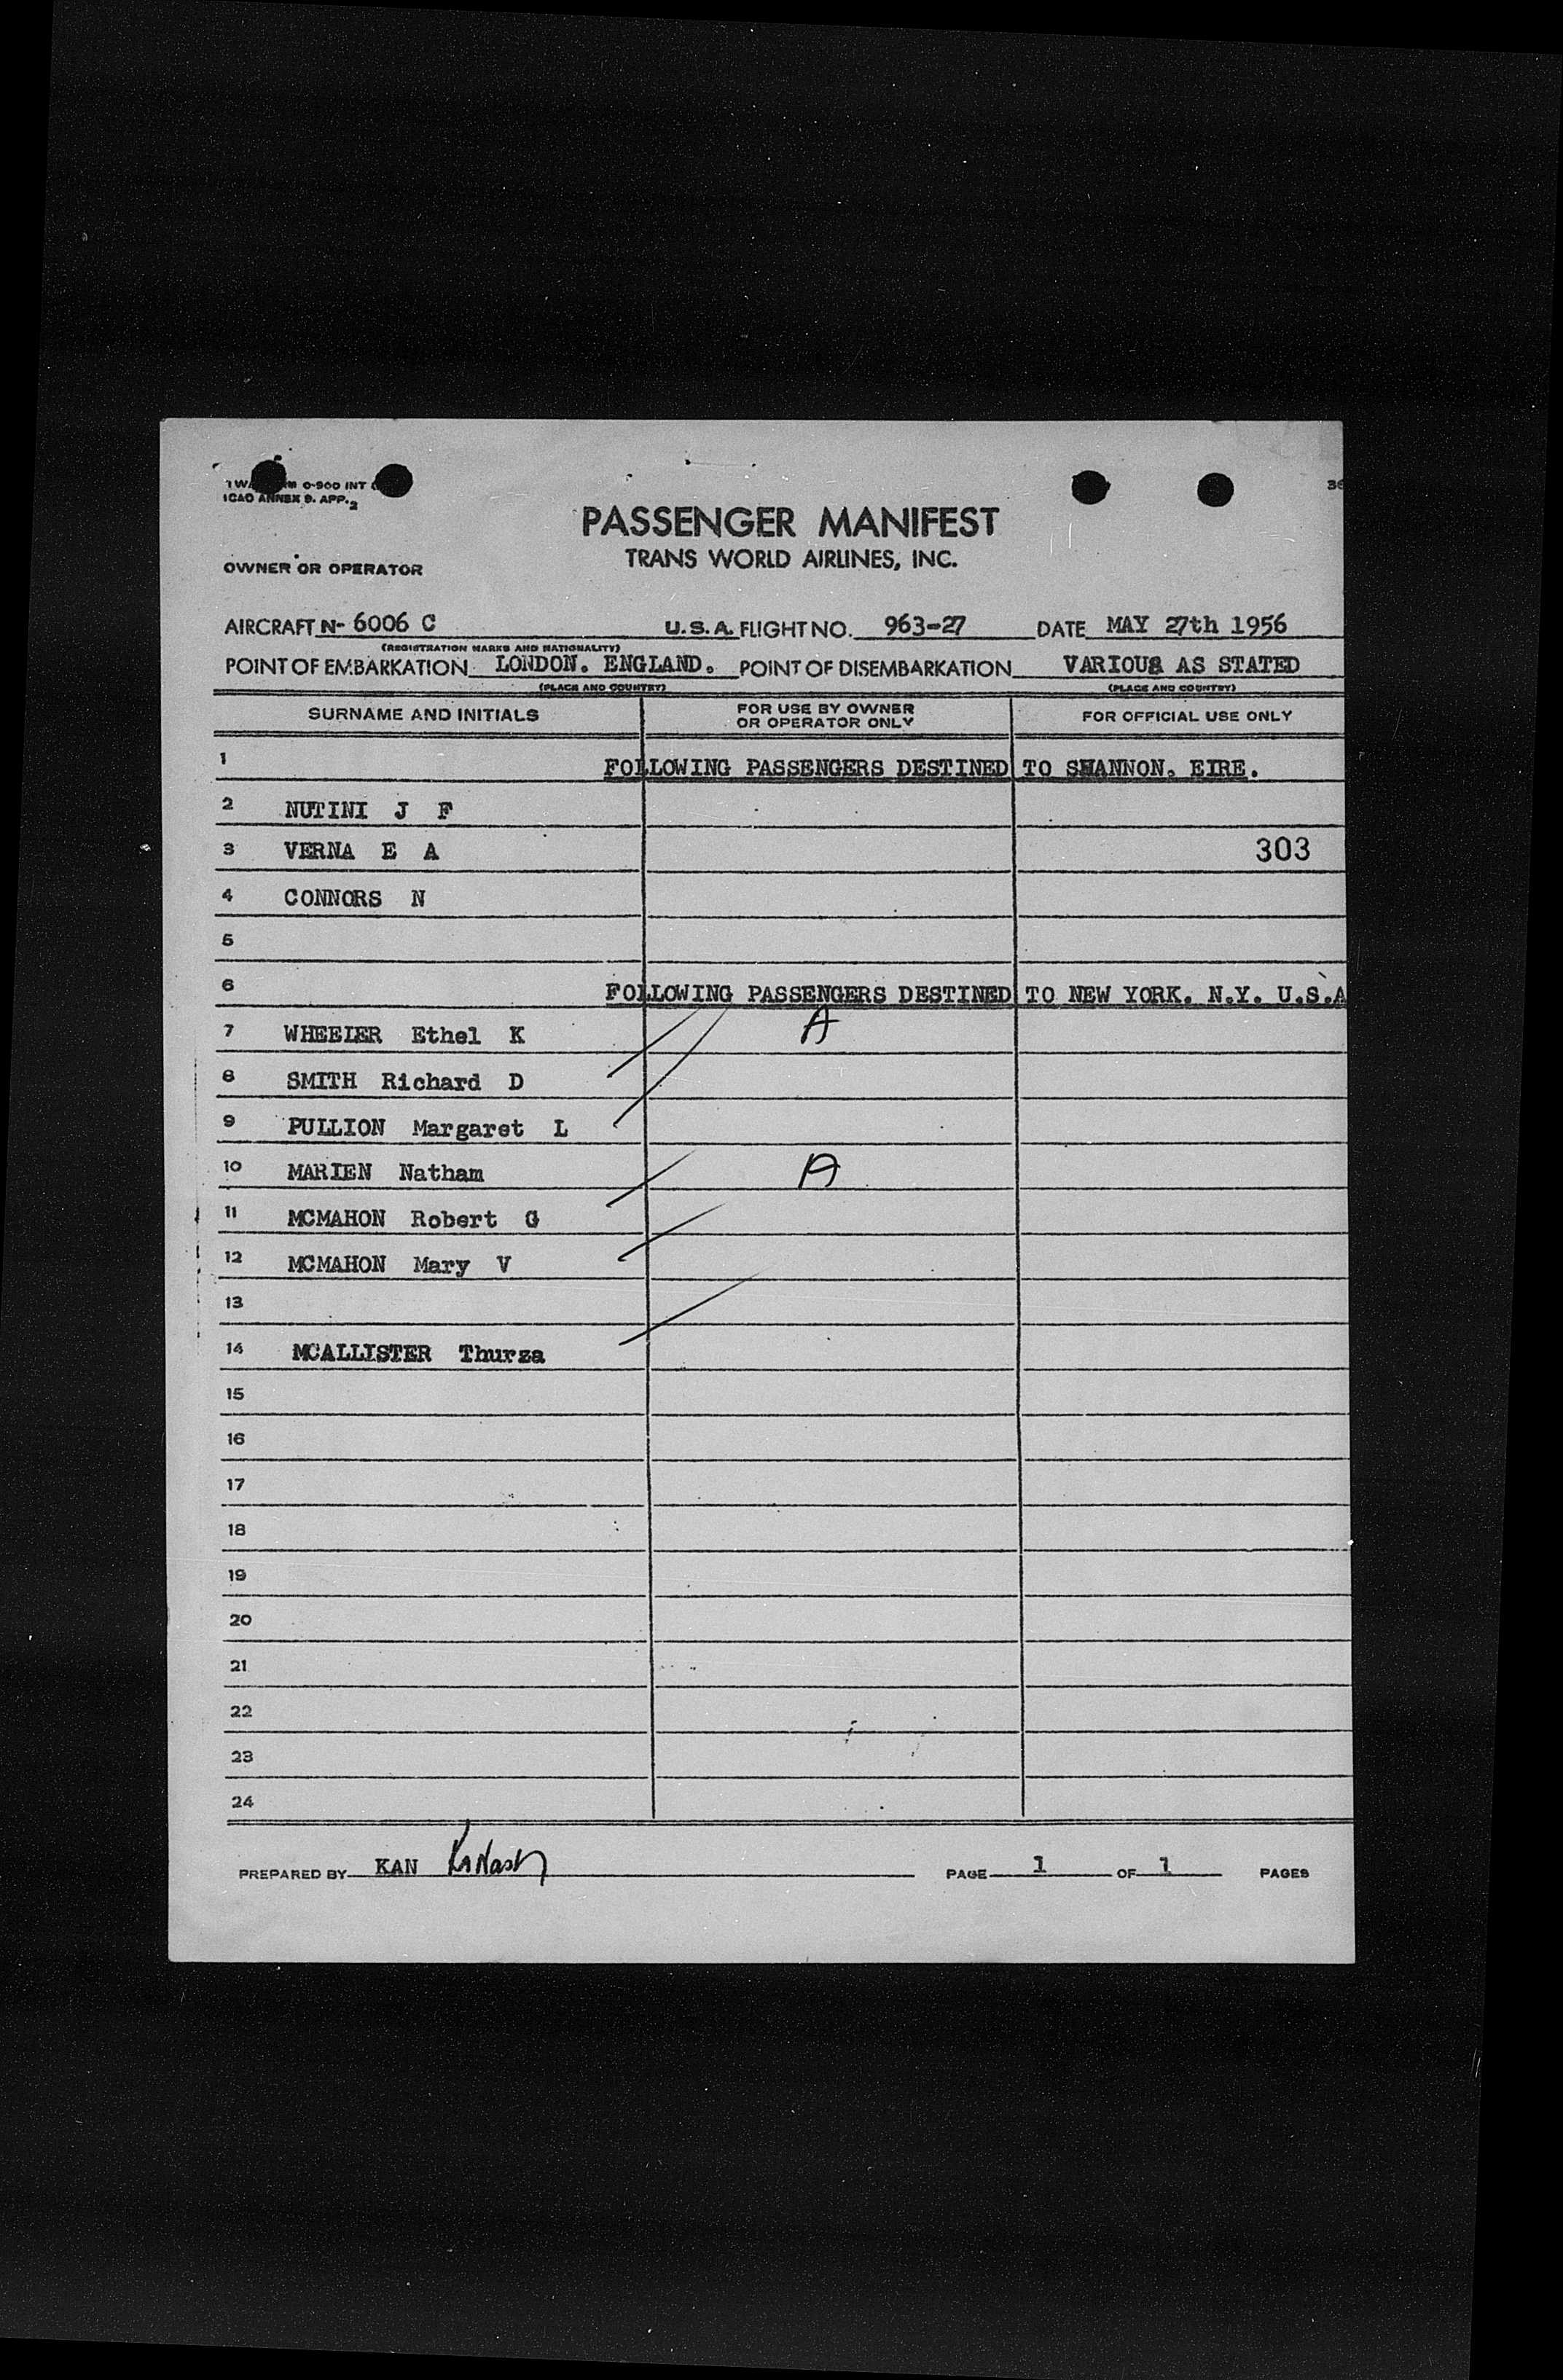 0-900 INT
ICAO ANNEX 9. APP. 2
36
PASSENGER MANIFEST
TRANS WORLD AIRLINES, INC.
OWNER OR OPERATOR
AIRCRAFT N- 6006 C U.S.A. FLIGHT NO. 963-27 DATE MAY 27th 1956
(REGISTRATION MARKS AND NATIONALITY)
POINT OF EMBARKATION LONDON. ENGLAND. POINT OF DISEMBARKATION VARIOUS AS STATED
(PLACE AND COUNTRY) (PLACE AND COUNTRY)
SURNAME AND INITIALS FOR USE BY OWNER OR OPERATOR ONLY FOR OFFICIAL USE ONLY
1 FOLLOWING PASSENGERS DESTINED TO SHANNON. EIRE.
2 NUTINI J F
3 VERNA E A 303
4 CONNORS N
5
6 FOLLOWING PASSENGERS DESTINED TO NEW YORK. N.Y. U.S.A
7 WHEELER Ethel K A
8 SMITH Richard D
9 PULLION Margaret L
10 MARIEN Natham A
11 MCMAHON Robert G
12 MCMAHON Mary V
13
14 MCALLISTER Thurza
15
16
17
18
19
20
21
22
23
24
PREPARED BY KAN KANash PAGE 1 OF 1 PAGES